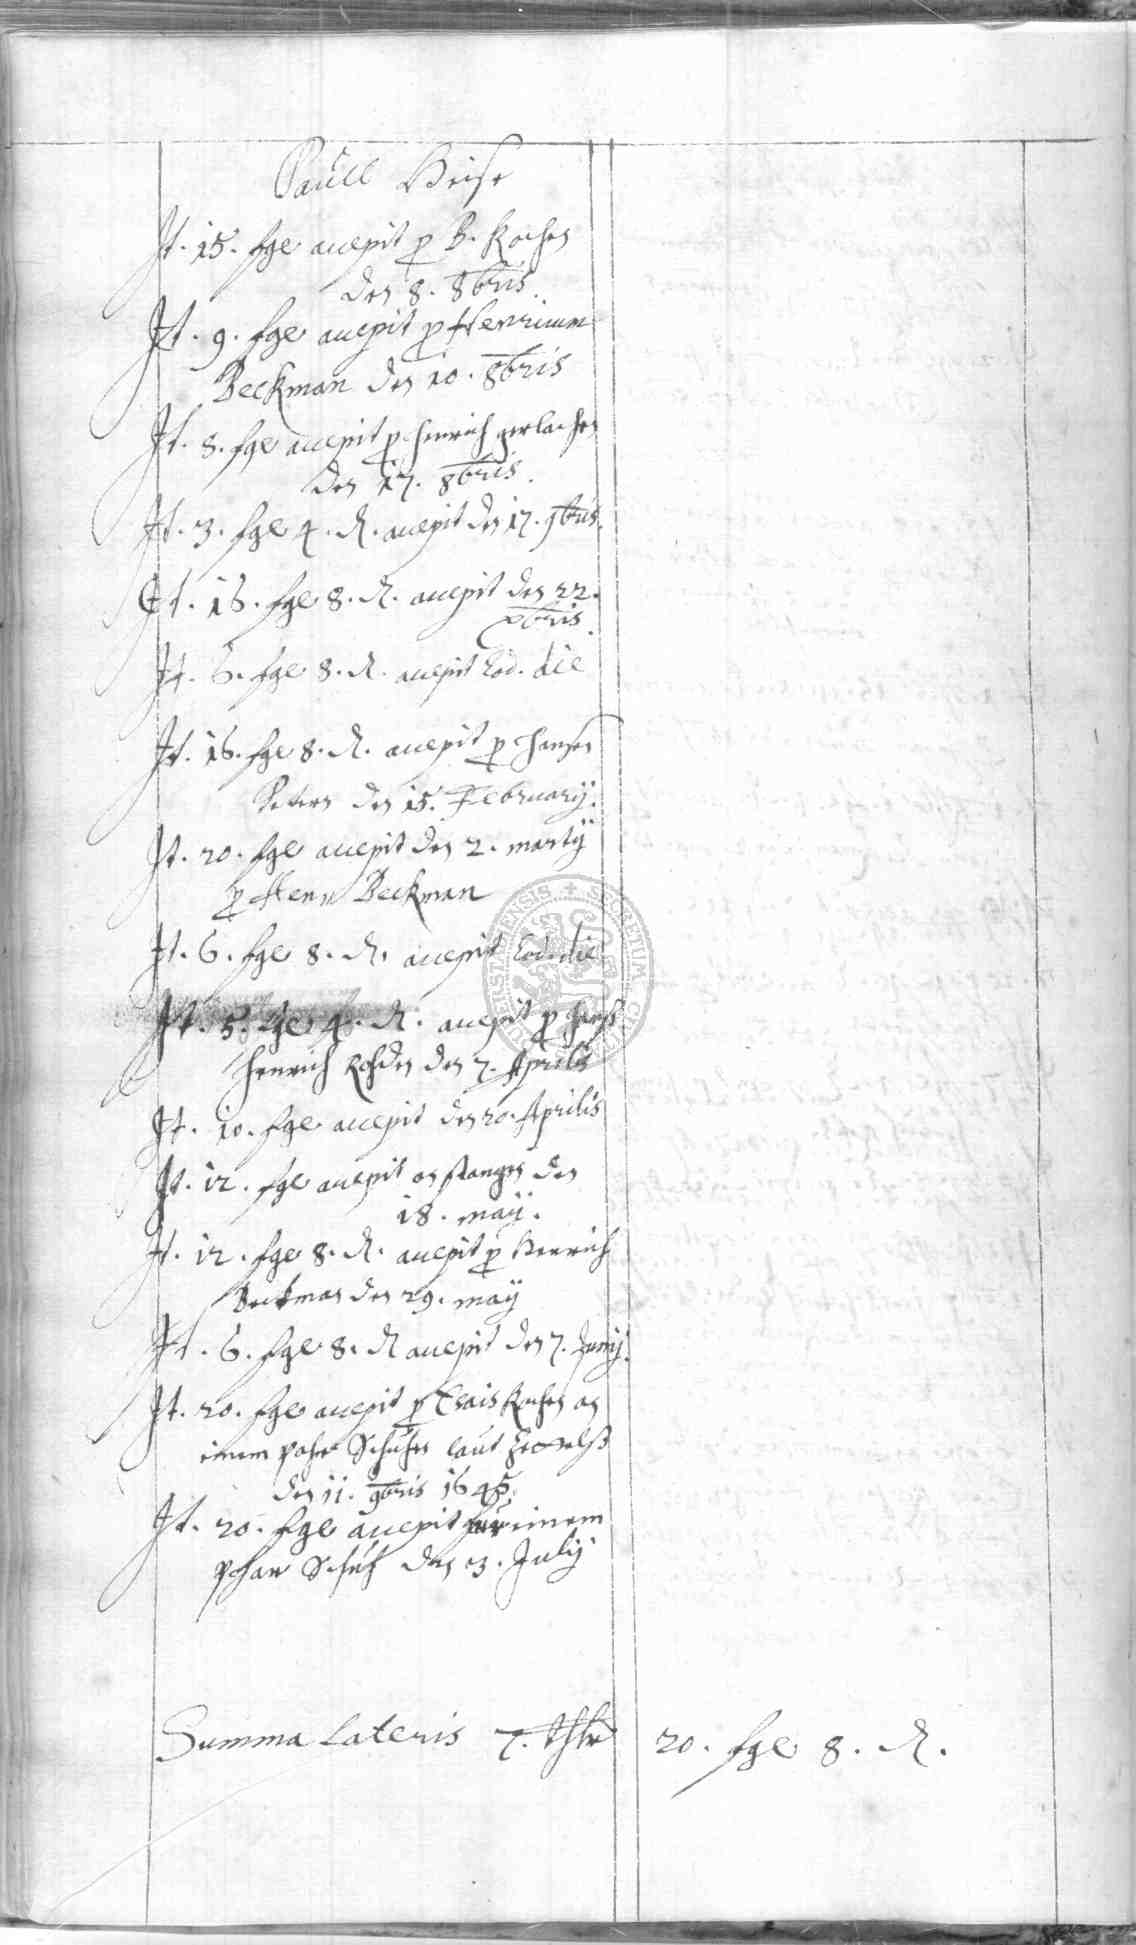 Paull Heise
It. 15. sgl accepit p B. Kochen
den 8. 8bris.
It. 9. sgl accepit p Henricum
Beckman den 10. 8bris
It. 8. sgl accepit p Henrich gerlachen
den 17. 8bris.
It. 3. sgl 4. d. accepit den 17. 9bris.
It. 16. sgl 8. d. accepit den 22.
xbris.
It. 6. sgl 8. d. accepit Eod. die
It. 16. sgl 8. d. accepit p Hansen
Peters den 15. February.
It. 20. sgl accepit den 2. marty
p Henr Beckman
It. 6. sgl 8. d. accepit Eod. die
It. 5. sgl 4. d. accepit p Hanß
Henrich Rohden den 7. Aprilis
It. 10. sgl accepit den 20. Aprilis
It. 12. sgl accepit an den
18. may.
It. 12. sgl 8. d. accepit p Henrich
Beckman den 29. may
It. 6. sgl 8. d accepit den 7. Juny.
It. 20. sgl accepit p Kochen an
einem pahr Schuhen laut
den 11. 9bris 1645.
It. 20. sgl accepit einem
pahar Schuh den 3. July
Summa Lateris 7. thlr 20. sgl 8. d.